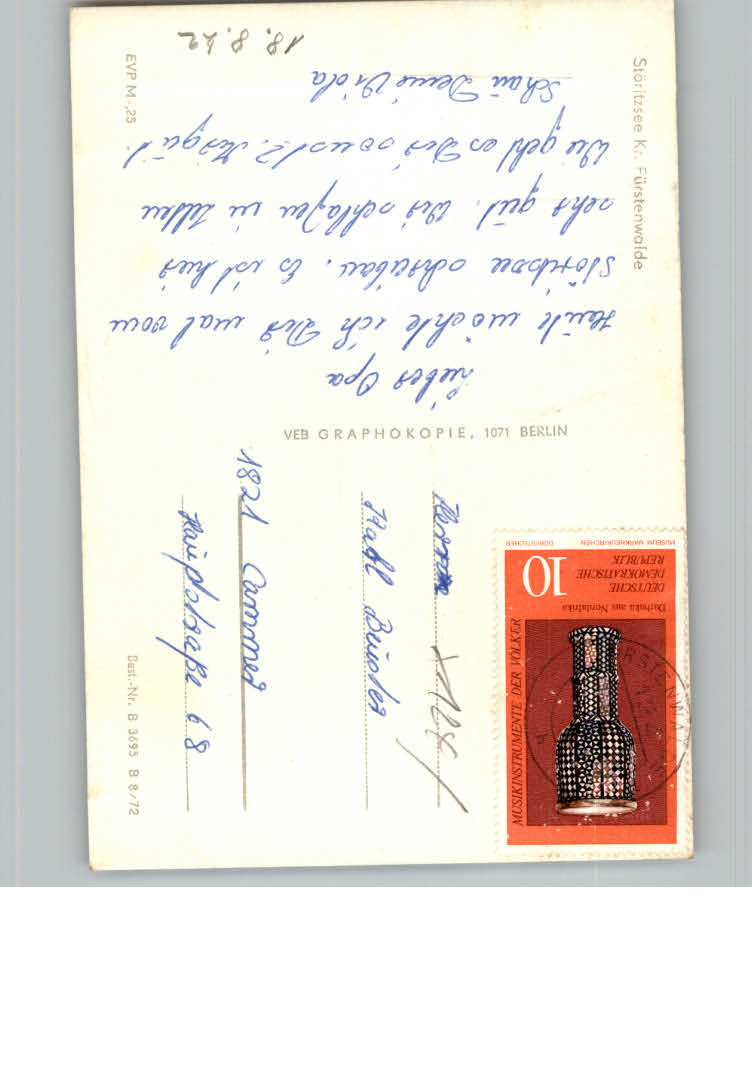 18.8.72
Lieber Opa
Heute möchte ich Dir mal vom
Störitzsee schreiben. Es ist hier
sehr gut. Wir schlafen in Zelten
Wie geht es Dir sonst?. Mir gut.
Schau Deine Viola
EVP M -,25
Störitzsee Kr. Fürstenwalde
VEB GRAPHOKOPIE, 1071 BERLIN
Best.-Nr. B 3695 B 8/72
Herrn
Karl
1821 Cammer
Hauptstraße 68
MUSIKINSTRUMENTE DER VÖLKER
Darbuka aus Nordafrika
DEUTSCHE
DEMOKRATISCHE
REPUBLIK
10
MUSEUM MARKNEUKIRCHEN